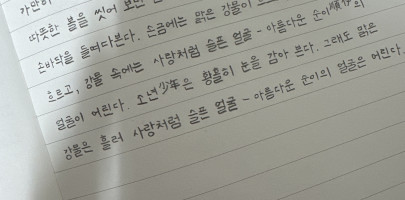 가만히
따뜻한 볼을 씻어 보면
손바닥을 들여다본다. 손금에는 맑은 강물이
흐르고, 강물 속에는 사랑처럼 슬픈 얼굴 - 아름다운 순이順伊의
얼굴이 어린다. 소년少年은 황홀히 눈을 감아 본다. 그래도 맑은
강물은 흘러 사랑처럼 슬픈 얼굴 - 아름다운 순이의 얼굴은 어린다.